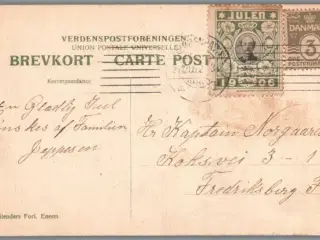 VERDENSPOSTFORENINGEN
(UNION POSTALE UNIVERSELLE)
BREVKORT — CARTE POST
Korrespondance:
JULEN
1906
DANMARK
3
en Glædelig Jul
ønskes af Familien
Jeppesen
Hr Kaptain Norgaard
Koksvei 3 - 1
Fredriksberg
Forl. Eneret.